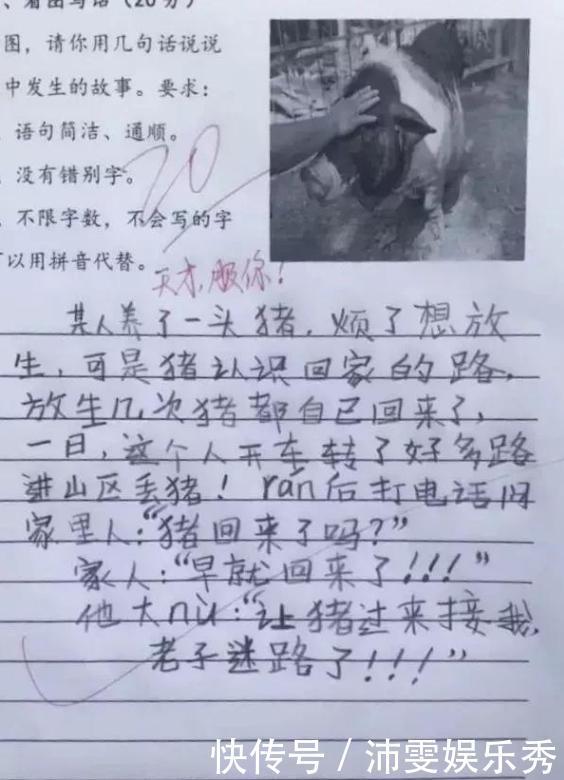 、看图写话（20分）
图，请你用几句话说说
中发生的故事。要求：
语句简洁、通顺。
没有错别字。
不限字数，不会写的字
以用拼音代替。
20
天才，服你！
某人养了一头猪，烦了想放
生，可是猪认识回家的路，
放生几次猪都自己回来了，
一日，这个人开车转了好多路
进山区丢猪！rán后打电话问
家里人：“猪回来了吗？”
家人：“早就回来了！！！”
他大nù：“让猪过来接我，
老子迷路了！！！”
快传号 / 沛雯娱乐秀